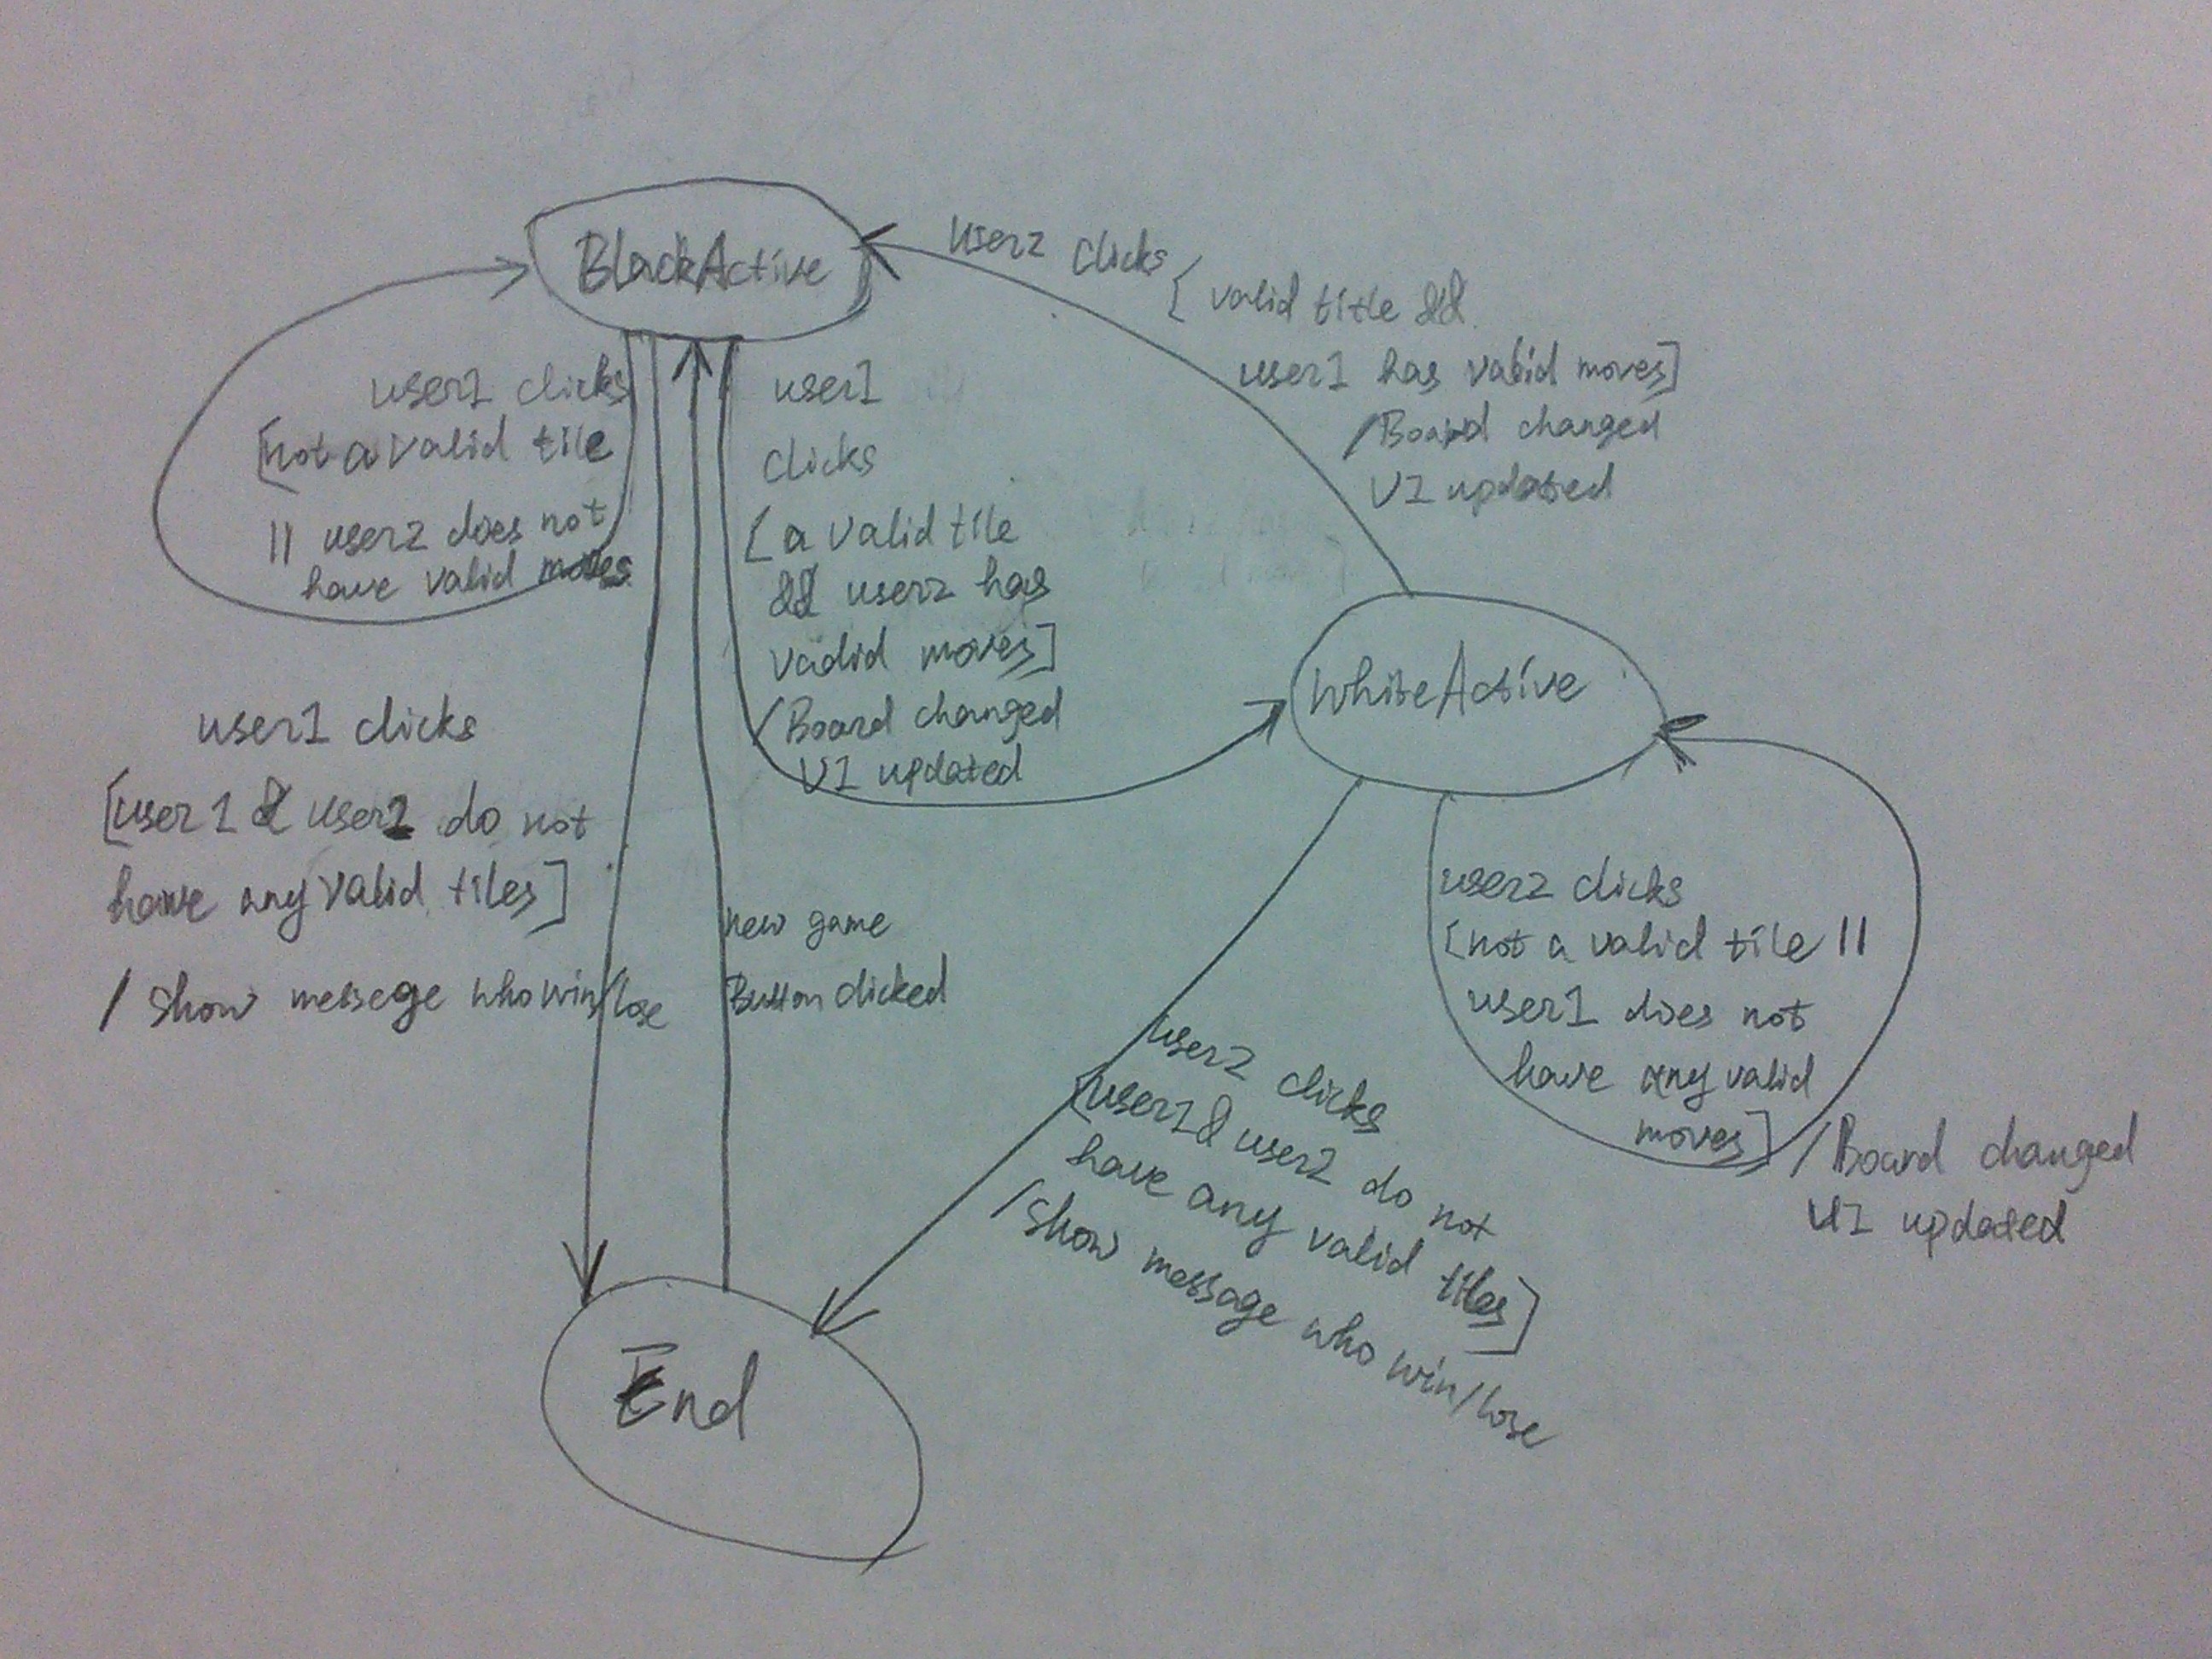 BlackActive
user2 clicks
[ valid title &&
user1 has valid moves]
/Board changed
UI updated
user1 clicks
[not a valid tile
|| user2 does not
have valid moves
user1
clicks
[a valid tile
&& user2 has
vadid moves]
/Board changed
UI updated
WhiteActive
user1 clicks
[user1 & user2 do not
have any valid tiles]
/ show messege who win/lose
new game
Button clicked
user2 clicks
[not a valid tile ||
user1 does not
have any valid
moves] / Board changed
UI updated
user2 clicks
[user1 & user2 do not
have any valid tiles]
/show message who win/lose
End